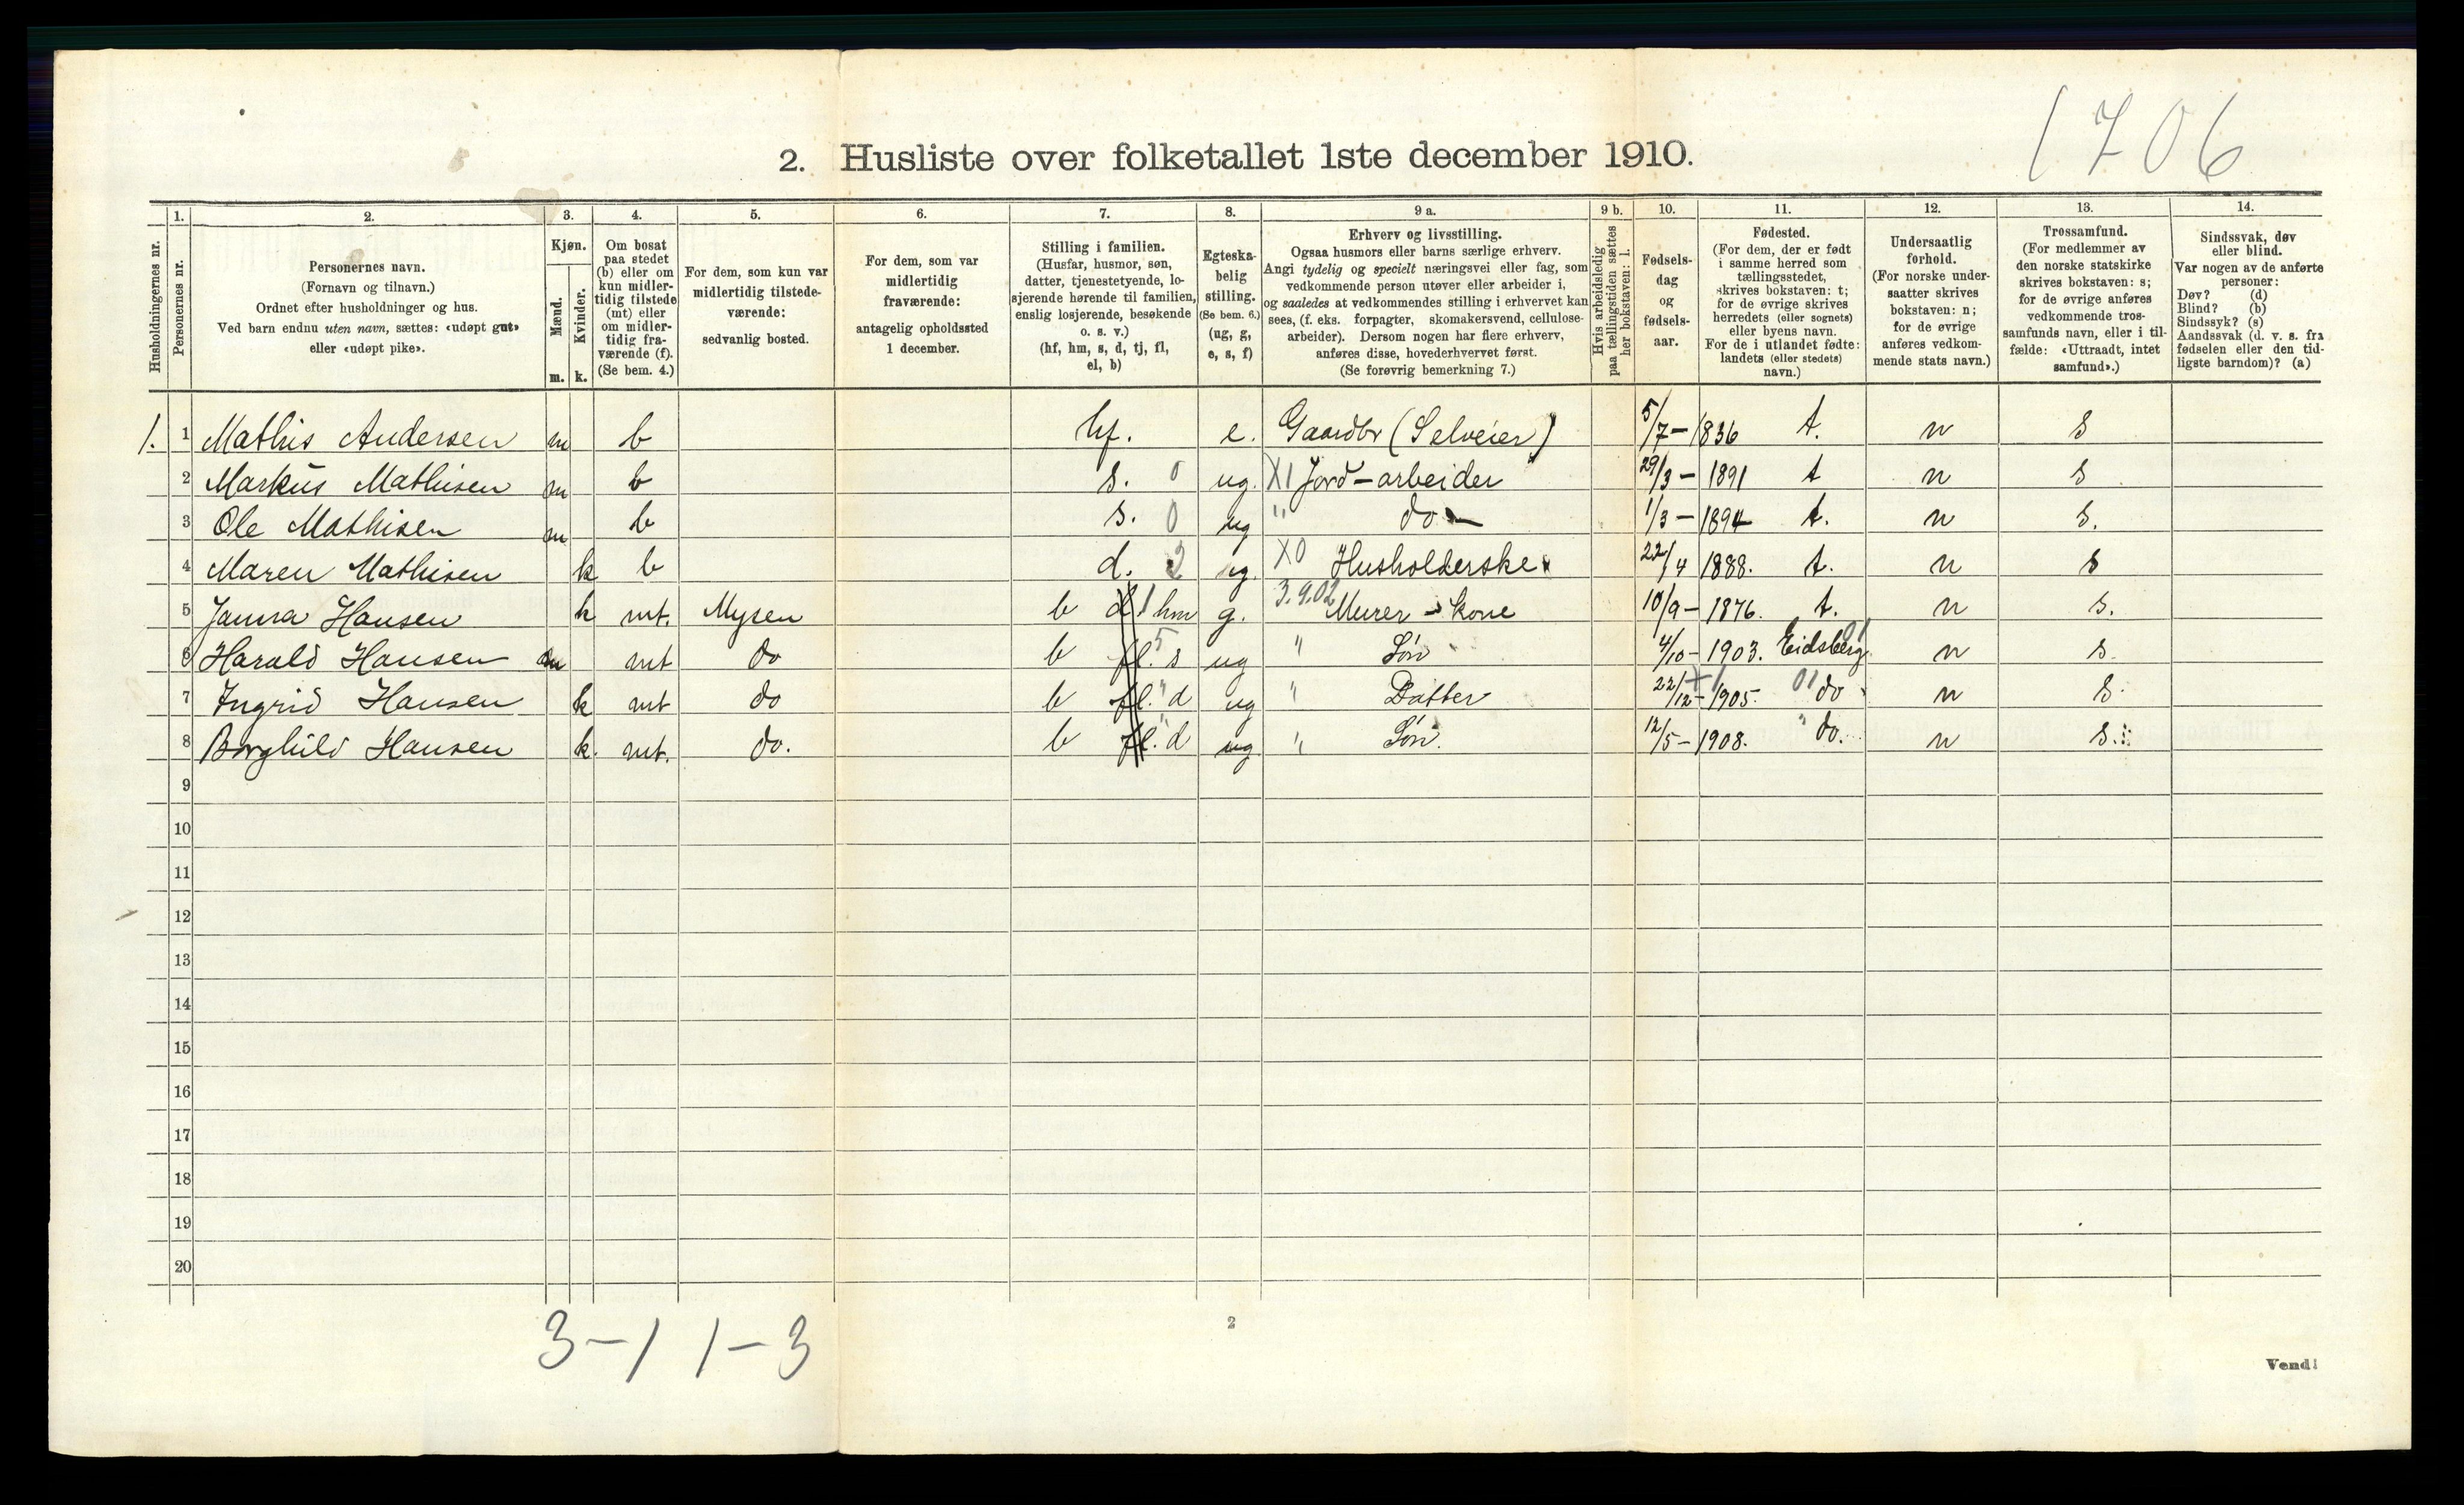 1706
2. Husliste over folketallet 1ste december 1910.
Husholdningernes nr.
1. Personernes nr.
2. Personernes navn. (Fornavn og tilnavn.) Ordnet efter husholdninger og hus. Ved barn endnu uten navn, sættes: «udøpt gut» eller «udøpt pike».
3. Kjøn. Mænd. m. Kvinder. k.
4. Om bosat paa stedet (b) eller om kun midlertidig tilstede (mt) eller om midlertidig fraværende (f). (Se bem. 4.)
5. For dem, som kun var midlertidig tilstedeværende: sedvanlig bosted.
6. For dem, som var midlertidig fraværende: antagelig opholdssted 1 december.
7. Stilling i familien. (Husfar, husmor, søn, datter, tjenestetyende, losjerende hørende til familien, enslig losjerende, besøkende o. s. v.) (hf, hm, s, d, tj, fl, el, b)
8. Egteskabelig stilling. (Se bem. 6.) (ug, g, e, s, f)
9 a. Erhverv og livsstilling. Ogsaa husmors eller barns særlige erhverv. Angi tydelig og specielt næringsvei eller fag, som vedkommende person utøver eller arbeider i, og saaledes at vedkommendes stilling i erhvervet kan sees, (f. eks. forpagter, skomakersvend, cellulosearbeider). Dersom nogen har flere erhverv, anføres disse, hovederhvervet først. (Se forøvrig bemerkning 7.)
9 b. Hvis arbeidsledig paa tællingstiden sættes her bokstaven: l.
10. Fødselsdag og fødselsaar.
11. Fødested. (For dem, der er født i samme herred som tællingsstedet, skrives bokstaven: t; for de øvrige skrives herredets (eller sognets) eller byens navn. For de i utlandet fødte: landets (eller stedets) navn.)
12. Undersaatlig forhold. (For norske undersaatter skrives bokstaven: n; for de øvrige anføres vedkommende stats navn.)
13. Trossamfund. (For medlemmer av den norske statskirke skrives bokstaven: s; for de øvrige anføres vedkommende trossamfunds navn, eller i tilfælde: «Uttraadt, intet samfund».)
14. Sindssvak, døv eller blind. Var nogen av de anførte personer: Døv? (d) Blind? (b) Sindssyk? (s) Aandssvak (d. v. s. fra fødselen eller den tidligste barndom)? (a)
1. 1 Mathis Andersen m b hf. e. Gaardbr (Selveier) 5/7-1836 t. n s
2 Markus Mathisen m b s. 0 ug. X1 Jord-arbeider 29/3-1891 t n s
3 Ole Mathisen m b s. 0 ug " do 1/3-1894 t. n s.
4 Maren Mathisen k b d. 2 ug. X0 Husholderske 22/4 1888. t. n s
5 Janna Hansen k mt. Mysen b d 1 hm g. 3.9.02 Murer-kone 10/9-1876. t. n s.
6 Harald Hansen m mt do b fl. 5 s ug " Søn 4/10-1903. Eidsberg 01 n s.
7 Ingrid Hansen k mt do b fl. " d ug " Datter 22/12-1905. 01 do n s.
8 Borghild Hansen k. mt. do. b fl. " d ug " Søn. 12/5-1908. " do. n s.
9
10
11
12
13
14
15
16
17
18
19
20
3-1 1-3
2
Vend!